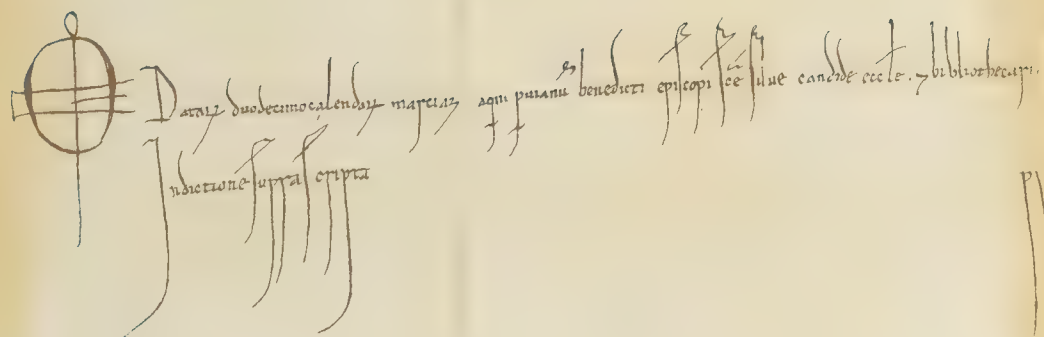 Dataꝝ duodecimo calendaꝝ marciaꝝ ꝑ manu benedicti episcopi scē silue candide eccle. ⁊ bibliothecari.
Indictione suprascripta